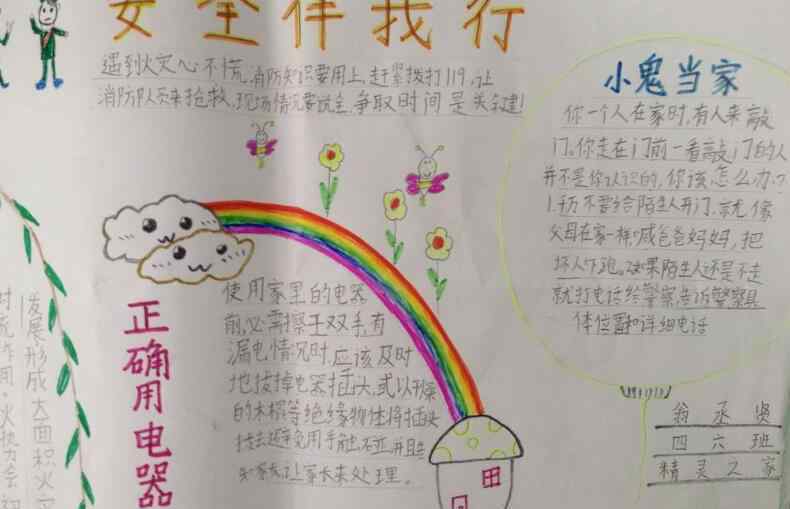 安全伴我行
遇到火灾心不慌,消防知识要用上,赶紧拨打119,让
消防队员来抢救,现场情况要说全,争取时间是关键!
小鬼当家
你一个人在家时,有人来敲
门。你走在门前一看敲门的人
并不是你认识的,你该怎么办?
1.千万不要给陌生人开门,就像
父母在家一样喊爸爸妈妈,把
坏人吓跑。如果陌生人还是不走
就打电话给警察告诉警察具
体位置和详细电话
正确用电器
使用家里的电器
前,必需擦干双手,有
漏电情况时,应该及时
地拔掉电器插头,或以干燥
的木棍等绝缘物体将插头
避免用手触
家长,让家长来处理。
翁丞贤
四六班
精灵之家
发展形成大面积火灾
时光作用,火热力会